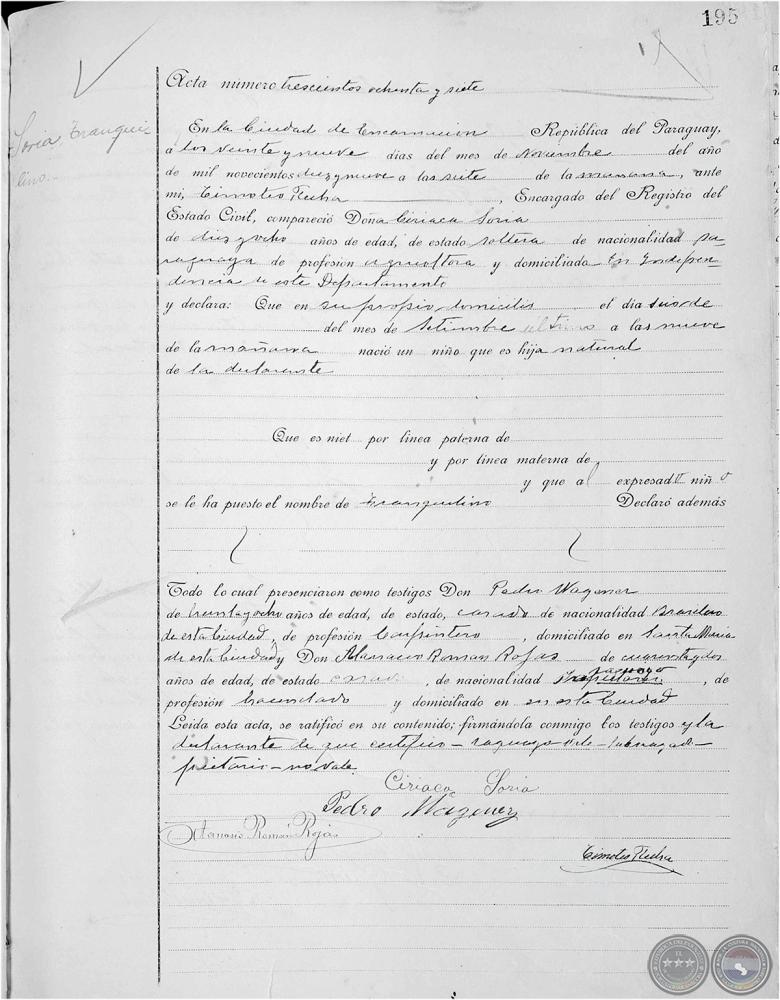 195
Acta número trescientos ochenta y siete
Soria, Tranqui
lino.
En la Ciudad de Encarnacion República del Paraguay,
a los veinte y nueve dias del mes de Noviembre del año
de mil novecientos diez y nueve a las siete de la mañana, ante
mi, Timoteo Flecha, Encargado del Registro del
Estado Civil, compareció Doña Ciriaca Soria
de diez y ocho años de edad, de estado soltera de nacionalidad pa-
raguaya de profesion agricultora y domiciliada en Indepen-
dencia de este Departamento
y declara: Que en su propio domicilio el dia seis de
del mes de Setiembre ultimo a las nueve
de la mañana nació un niño que es hijo natural
de la declarante
Que es niet por linea paterna de
y por linea materna de
y que al expresado niño
se le ha puesto el nombre de Tranquilino Declaró además
Todo lo cual presenciaron como testigos Don Pedro Wagener
de treinta y ocho años de edad, de estado, casado de nacionalidad Brasilero
de esta Ciudad, de profesión Carpintero, domiciliado en Santa Maria
de esta Ciudad y Don Atanacio Roman Rojas de cuarenta y dos
raguayo
años de edad, de estado casado, de nacionalidad, de
profesión hacendado y domiciliado en en esta Ciudad
Leida esta acta, se ratificó en su contenido; firmándola conmigo los testigos y la
declarante de que certifico - raguayo - vale -
pietario - no vale.
Ciriaca Soria
Pedro Wagener
Atanasio Roman Rojas
Timoteo Flecha